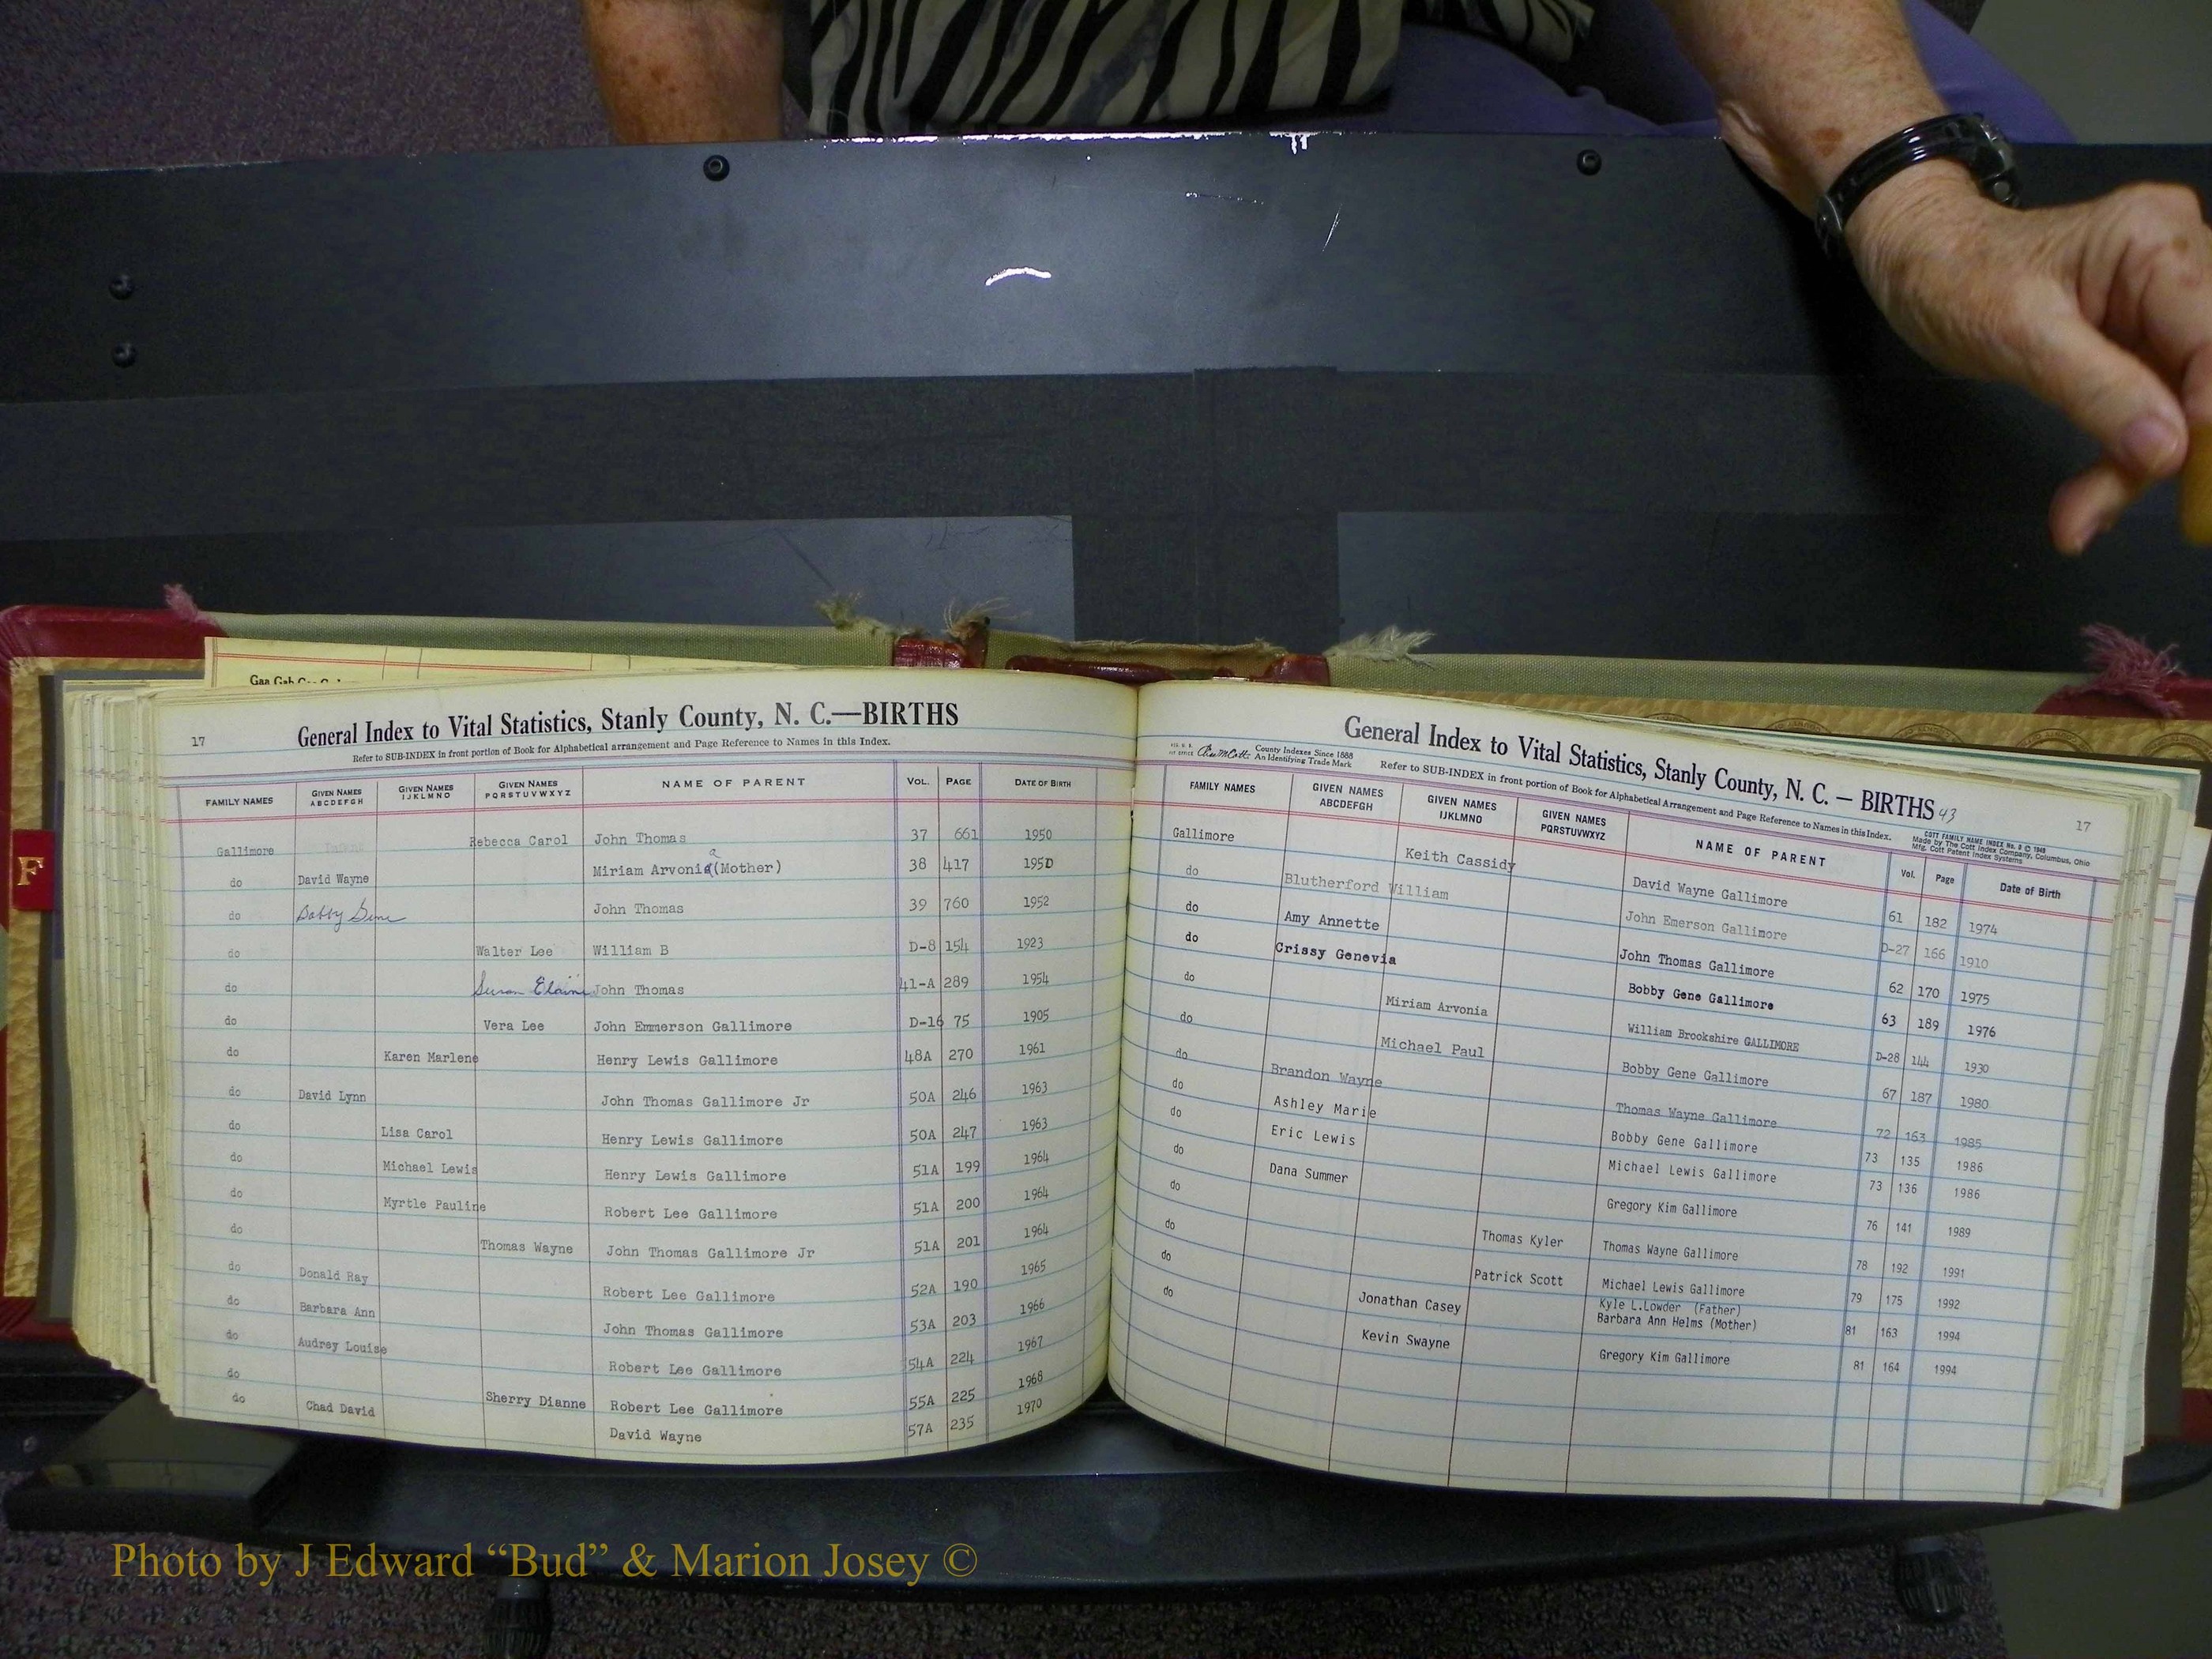 Gaa Gab
17
General Index to Vital Statistics, Stanly County, N. C.—BIRTHS
Refer to SUB-INDEX in front portion of Book for Alphabetical arrangement and Page Reference to Names in this Index.
FAMILY NAMES GIVEN NAMES ABCDEFGH GIVEN NAMES IJKLMNO GIVEN NAMES PQRSTUVWXYZ NAME OF PARENT VOL. PAGE DATE OF BIRTH
Gallimore Rebecca Carol John Thomas 37 661 1950
do David Wayne Miriam Arvonia (Mother) 38 417 1950
do Bobby Gene John Thomas 39 760 1952
do Walter Lee William B D-8 154 1923
do Susan Elaine John Thomas 41-A 289 1954
do Vera Lee John Emmerson Gallimore D-16 75 1905
do Karen Marlene Henry Lewis Gallimore 48A 270 1961
do David Lynn John Thomas Gallimore Jr 50A 246 1963
do Lisa Carol Henry Lewis Gallimore 50A 247 1963
do Michael Lewis Henry Lewis Gallimore 51A 199 1964
do Myrtle Pauline Robert Lee Gallimore 51A 200 1964
do Thomas Wayne John Thomas Gallimore Jr 51A 201 1964
do Donald Ray Robert Lee Gallimore 52A 190 1965
do Barbara Ann John Thomas Gallimore 53A 203 1966
do Audrey Louise Robert Lee Gallimore 54A 224 1967
do Sherry Dianne Robert Lee Gallimore 55A 225 1968
do Chad David David Wayne 57A 235 1970
General Index to Vital Statistics, Stanly County, N. C. — BIRTHS 43
County Indexes Since 1888
An Identifying Trade Mark
Refer to SUB-INDEX in front portion of Book for Alphabetical Arrangement and Page Reference to Names in this Index.
COTT FAMILY NAME INDEX No. 8 © 1948
Made by The Cott Index Company, Columbus, Ohio
Mfg. Cott Patent Index Systems
17
FAMILY NAMES GIVEN NAMES ABCDEFGH GIVEN NAMES IJKLMNO GIVEN NAMES PQRSTUVWXYZ NAME OF PARENT Vol. Page Date of Birth
Gallimore Keith Cassidy David Wayne Gallimore 61 182 1974
do Blutherford William John Emerson Gallimore D-27 166 1910
do Amy Annette John Thomas Gallimore 62 170 1975
do Crissy Genevia Bobby Gene Gallimore 63 189 1976
do Miriam Arvonia William Brookshire GALLIMORE D-28 144 1930
do Michael Paul Bobby Gene Gallimore 67 187 1980
do Brandon Wayne Thomas Wayne Gallimore 72 163 1985
do Ashley Marie Bobby Gene Gallimore 73 135 1986
do Eric Lewis Michael Lewis Gallimore 73 136 1986
do Dana Summer Gregory Kim Gallimore 76 141 1989
do Thomas Kyler Thomas Wayne Gallimore 78 192 1991
do Patrick Scott Michael Lewis Gallimore 79 175 1992
do Jonathan Casey Kyle L.Lowder (Father)
Barbara Ann Helms (Mother) 81 163 1994
do Kevin Swayne Gregory Kim Gallimore 81 164 1994
F
Photo by J Edward “Bud” & Marion Josey ©